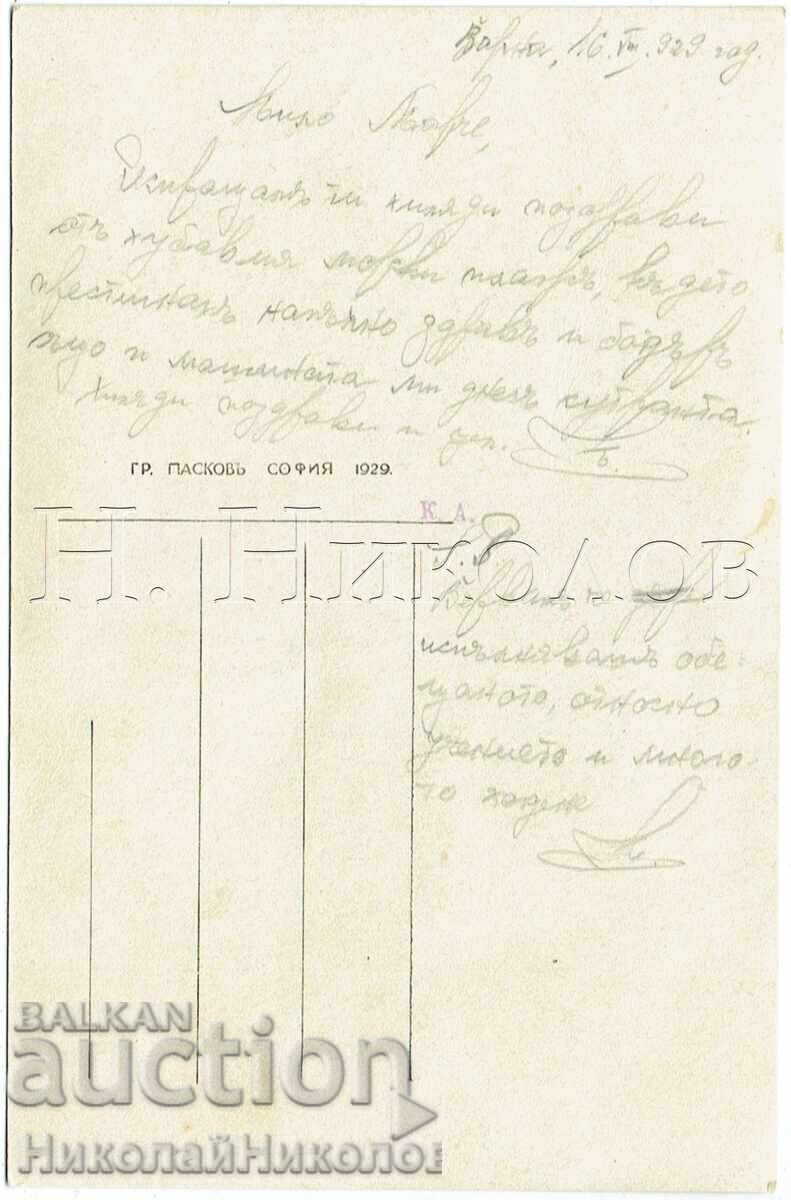 Варна, 16. VIII. 929 год.
Мило
Изпращамъ ти хиляди поздрави
отъ хубавия морски плажъ, където
пристигнахъ напълно здравъ и бодъръ
и машината ми днесъ сутринта.
Хиляди поздрави и цел.
ГР. ПАСКОВЪ СОФИЯ 1929.
К. А.
Н. НИКОЛОВ
P.
изпълнявашъ обе-
щаното, относно
учението и много
то ходене
BALKAN
auction
НиколайНиколов